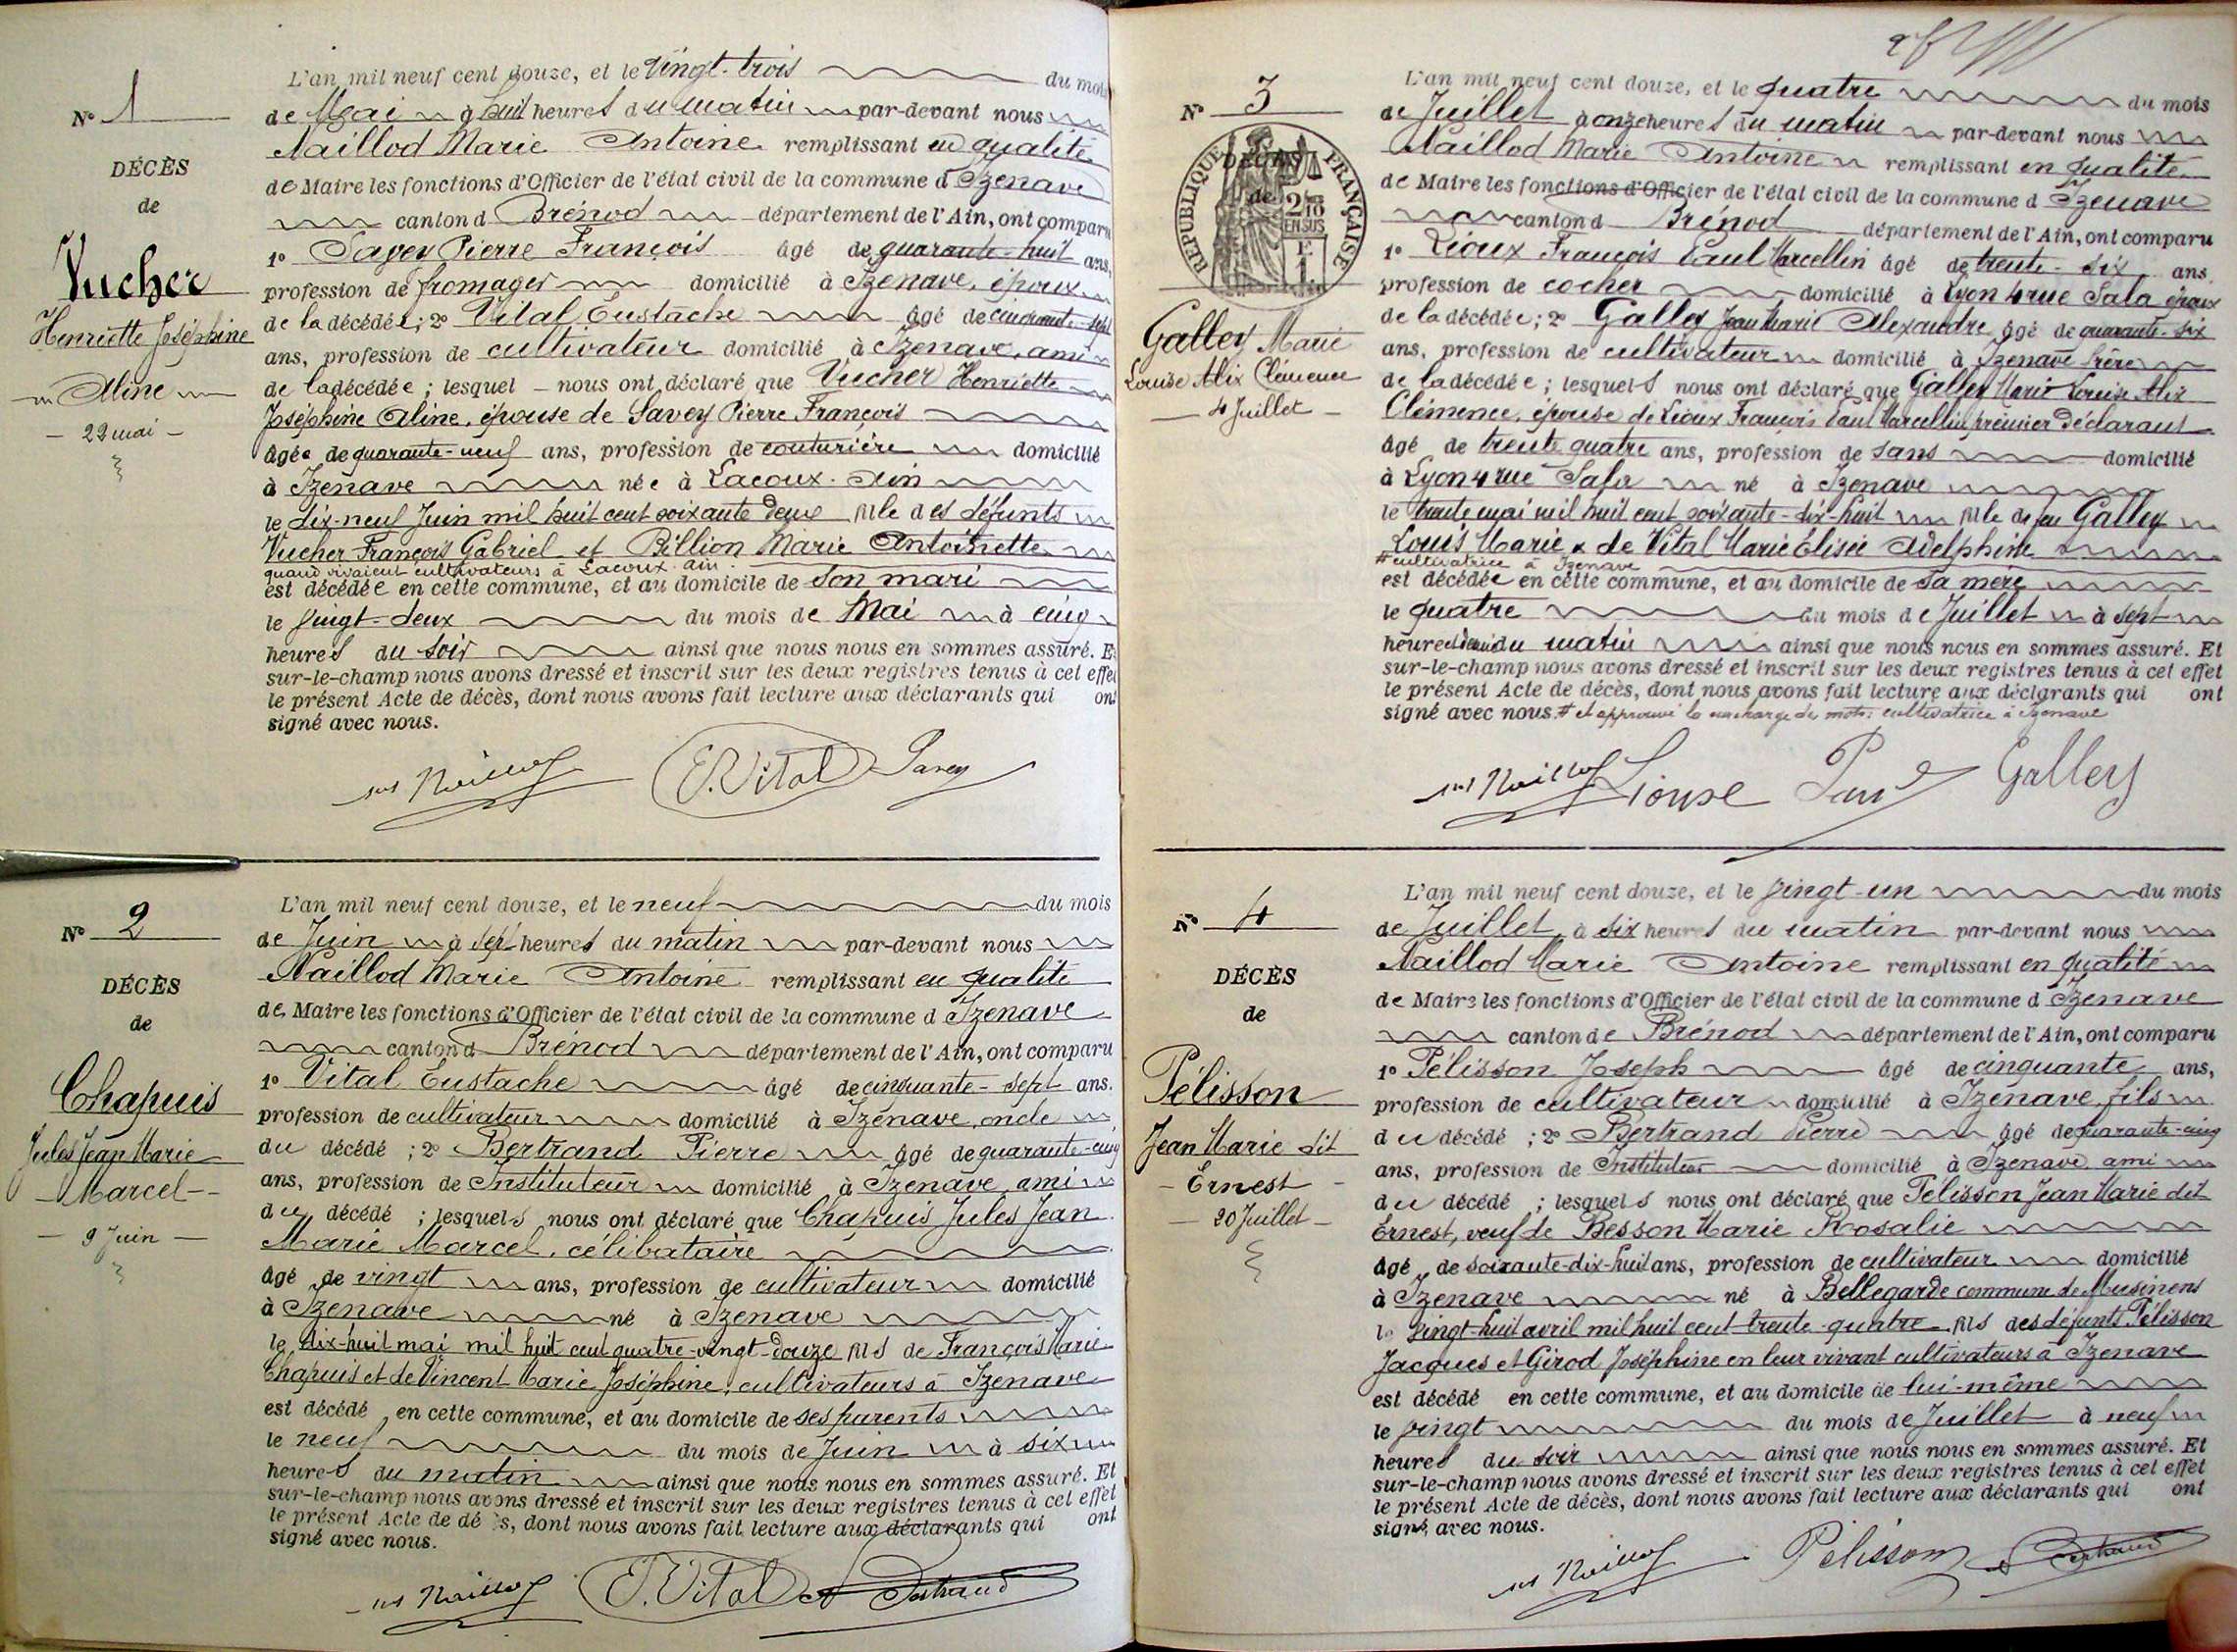 L'an mil neuf cent douze, et le vingt-trois du mois
Nº 1
de Mai à huit heures du matin par-devant nous
Naillod Marie Antoine remplissant en qualité
DÉCÈS
de Maire les fonctions d'Officier de l'état civil de la commune d'Izenave
de
canton d Brénod département de l'Ain, ont comparu
Vucher
1º Savey Pierre François âgé de quarante-huit ans,
profession de fromager domicilié à Izenave, époux
Henriette Joséphine
de la décédée; 2º Vital Eustache âgé de cinquante-sept
Aline
ans, profession de cultivateur domicilié à Izenave, ami
de la décédée; lesquel nous ont déclaré que Vucher Henriette
22 mai
Joséphine Aline, épouse de Savey Pierre François
âgée de quarante-neuf ans, profession de couturière domicilié
à Izenave née à Lacoux. Ain
le dix-neuf Juin mil huit cent soixante deux fille des défunts
Vucher François Gabriel et Billion Marie Antoinette
quand vivaient cultivateurs à Lacoux. Ain.
est décédée en cette commune, et au domicile de son mari
le vingt-deux du mois de Mai à cinq
heures du soir ainsi que nous nous en sommes assuré. Et
sur-le-champ nous avons dressé et inscrit sur les deux registres tenus à cet effet
le présent Acte de décès, dont nous avons fait lecture aux déclarants qui ont
signé avec nous.
Naillod E. Vital Savey
L'an mil neuf cent douze, et le neuf du mois
Nº 2
de Juin à sept heures du matin par-devant nous
Naillod Marie Antoine remplissant en qualité
DÉCÈS
de Maire les fonctions d'Officier de l'état civil de la commune d Izenave
de
canton d Brénod département de l'Ain, ont comparu
Chapuis
1º Vital Eustache âgé de cinquante-sept ans.
profession de cultivateur domicilié à Izenave, oncle
Jules Jean Marie
du décédé; 2º Bertrand Pierre âgé de quarante-cinq
Marcel
ans, profession de Instituteur domicilié à Izenave, ami
9 Juin
du décédé; lesquels nous ont déclaré que Chapuis Jules Jean
Marie Marcel, célibataire
âgé de vingt ans, profession de cultivateur domicilié
à Izenave né à Izenave
le dix-huit mai mil huit cent quatre-vingt-douze fils de François Marie
Chapuis et de Vincent Marie Joséphine, cultivateurs à Izenave
est décédé en cette commune, et au domicile de ses parents
le neuf du mois de Juin à six
heures du matin ainsi que nous nous en sommes assuré. Et
sur-le-champ nous avons dressé et inscrit sur les deux registres tenus à cet effet
le présent Acte de dé s, dont nous avons fait lecture aux déclarants qui ont
signé avec nous.
Naillod E. Vital Bertrand
L'an mil neuf cent douze, et le quatre du mois
Nº 3
de Juillet à onze heures du matin par-devant nous
Naillod Marie Antoine remplissant en qualité
DÉCÈS
de
RÉPUBLIQUE FRANÇAISE
2/10 EN SUS
F
1
de Maire les fonctions d'Officier de l'état civil de la commune d Izenave
canton d Brénod département de l'Ain, ont comparu
1º Lioux François Paul Marcellin âgé de trente-six ans
profession de cocher domicilié à Lyon 4 rue Sala époux
Galley Marie
de la décédée; 2º Galley Jean Marie Alexandre âgé de quarante-six
Louise Alix Clémence
ans, profession de cultivateur domicilié à Izenave frère
4 Juillet
de la décédée; lesquels nous ont déclaré que Galley Marie Louise Alix
Clémence, épouse de Lioux François Paul Marcellin premier déclarant
âgé de trente quatre ans, profession de sans domicilié
à Lyon 4 rue Sala né à Izenave
le trente mai mil huit cent soixante-dix-huit fille de feu Galley
Louis Marie & de Vital Marie Élisée Adelphine
# cultivatrice à Izenave
est décédée en cette commune, et au domicile de sa mère
le quatre du mois de Juillet à sept
heures demi du matin ainsi que nous nous en sommes assuré. Et
sur-le-champ nous avons dressé et inscrit sur les deux registres tenus à cet effet
le présent Acte de décès, dont nous avons fait lecture aux déclarants qui ont
signé avec nous. # et approuvé la surcharge des mots: cultivatrice à Izenave
Naillod Lioux Paul Galley
L'an mil neuf cent douze, et le vingt-un du mois
Nº 4
de Juillet, à six heures du matin par-devant nous
Naillod Marie Antoine remplissant en qualité
DÉCÈS
de Maire les fonctions d'Officier de l'état civil de la commune d Izenave
de
canton de Brénod département de l'Ain, ont comparu
Pélisson
1º Pélisson Joseph âgé de cinquante ans,
profession de cultivateur domicilié à Izenave, fils
Jean Marie dit
du décédé; 2º Bertrand Pierre âgé de quarante-cinq
Ernest
ans, profession de Instituteur domicilié à Izenave ami
20 Juillet
du décédé; lesquels nous ont déclaré que Pélisson Jean Marie dit
Ernest, veuf de Besson Marie Rosalie
âgé de soixante-dix-huit ans, profession de cultivateur domicilié
à Izenave né à Bellegarde commune de Musinens
le vingt-huit avril mil huit cent trente-quatre fils des défunts Pélisson
Jacques et Girod Joséphine en leur vivant cultivateurs à Izenave
est décédé en cette commune, et au domicile de lui-même
le vingt du mois de Juillet à neuf
heures du soir ainsi que nous nous en sommes assuré. Et
sur-le-champ nous avons dressé et inscrit sur les deux registres tenus à cet effet
le présent Acte de décès, dont nous avons fait lecture aux déclarants qui ont
signé avec nous.
Naillod Pélisson Bertrand